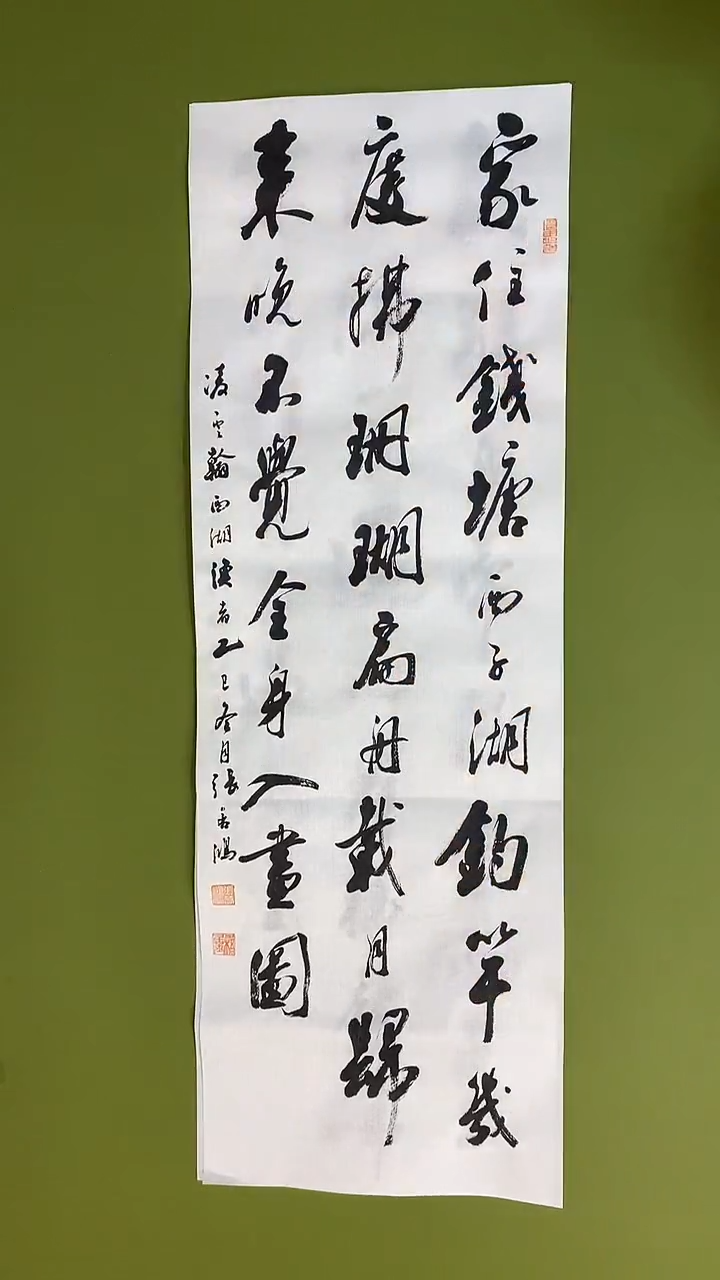 家住錢塘西子湖釣竿幾
度拂珊瑚扁舟載月歸
來晚不覺全身入畫圖
凌雲翰西湖漁者乙巳冬月張